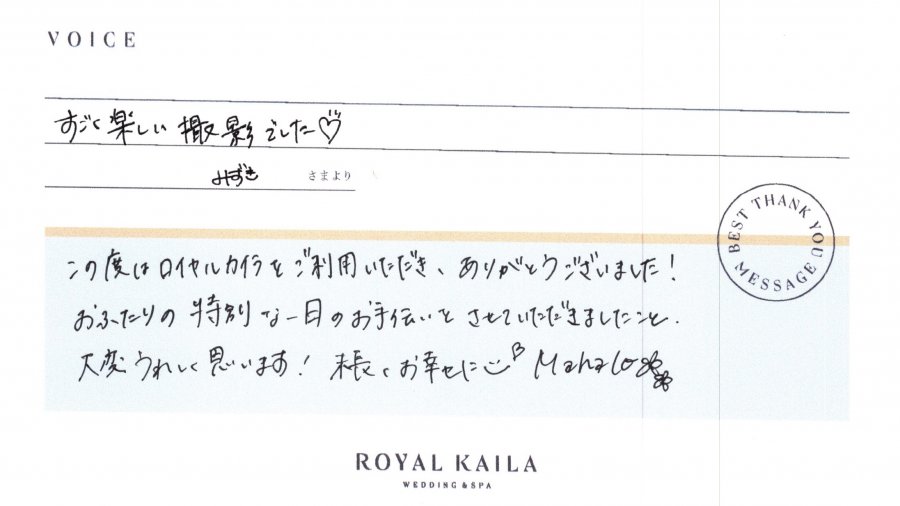 VOICE
すごく楽しい撮影でした♡
みずき さまより
BEST THANK YOU MESSAGE
この度はロイヤルカイラをご利用いただき、ありがとうございました!
おふたりの特別な一日のお手伝いをさせていただきましたこと、
大変うれしく思います! 末長くお幸せに Mahalo
ROYAL KAILA
WEDDING & SPA